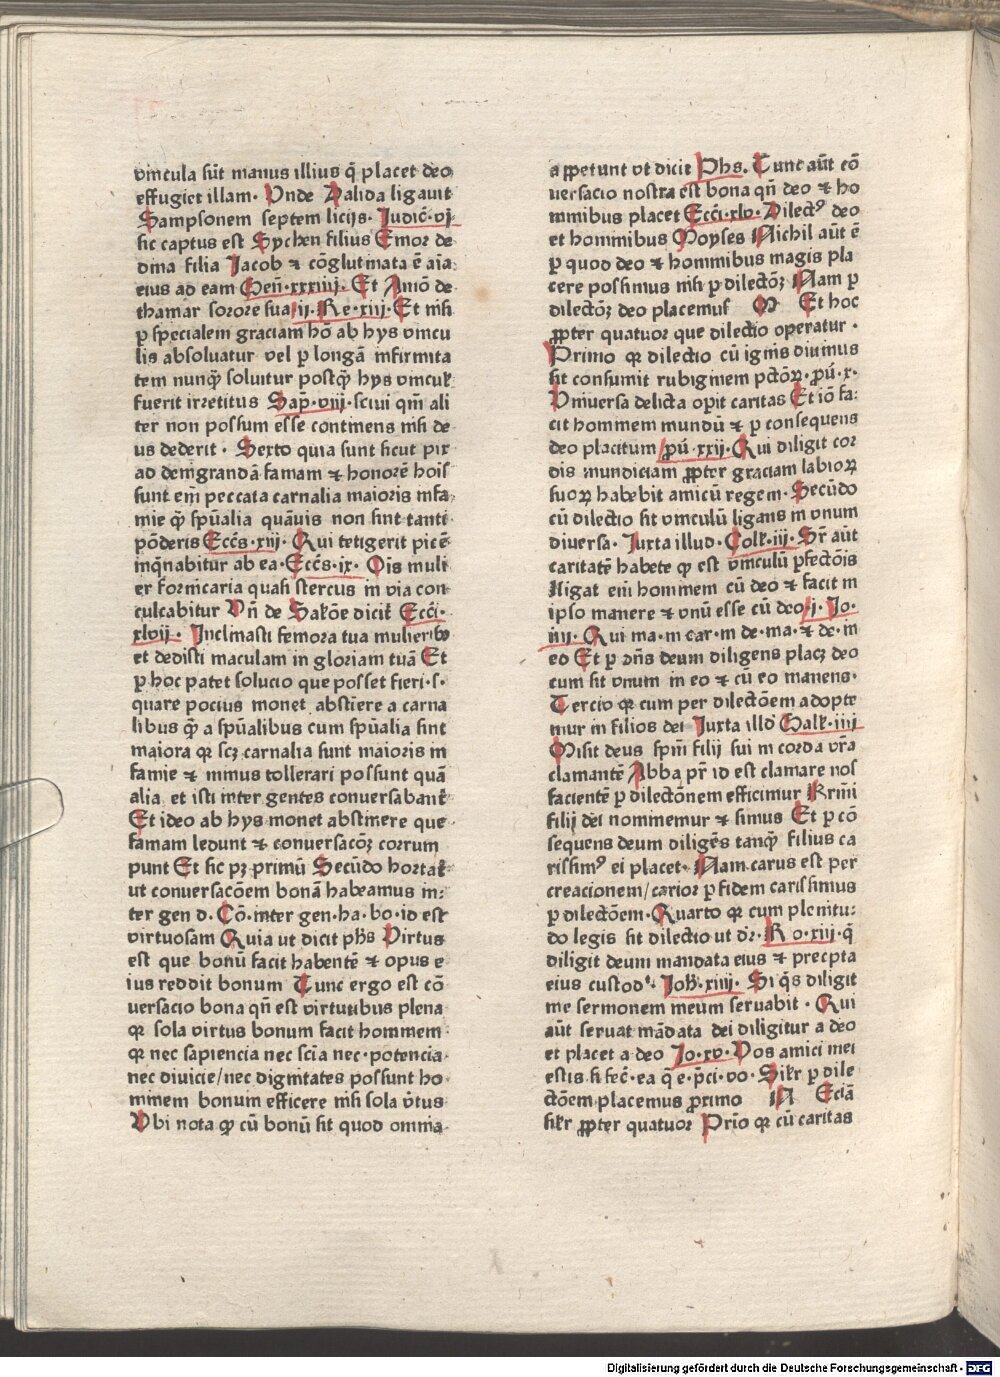 vincula sūt manus illius q̄ placet deo
effugiet illam. Unde Dalida ligauit
Sampsonem septem licijs. Judic̄·vj·
sic captus est Sychen filius Emor de
dina filia Jacob ⁊ cōglutinata ē aīa
eius ad eam Gen̄·xxxiiij. Et Amō de
thamar sorore sua·ij·Re·xiij·Et nisi
p specialem graciam hō ab hys vincu
lis absoluatur vel p longā infirmita
tem nunq̄ soluitur postq̄ hys vincul'
fuerit irretitus Sap̄·viij·sciui qm̄ ali
ter non possum esse continens nisi de
us dederit · Sexto quia sunt sicut pix
ad denigrandā famam ⁊ honorē hoīs
sunt em̄ peccata carnalia maioris infa-
mie q̄ spūalia quāuis non sint tanti
pōderis Ecc̄s·xiij·Qui tetigerit picē
inq̄nabitur ab ea·Ecc̄s·ix·Oīs muli
er fornicaria quasi stercus in via con
culcabitur Vn̄ de Salōe dicit' Ecc̄i·
xlvij· Inclinasti femora tua mulierib9
et dedisti maculam in gloriam tuā Et
p hoc patet solucio que posset fieri·s·
quare pocius monet abstinere a carna
libus q̄ a spūalibus cum spūalia sint
maiora qꝛ scꝫ carnalia sunt maioris in
famie ⁊ minus tollerari possunt quā
alia et isti inter gentes conuersabant'
Et ideo ab hys monet abstinere que
famam ledunt ⁊ conuersacōꝫ corrum
punt Et sic pꝫ primū Secūdo hortat'
ut conuersacōem bonā habeamus in-
ter gen d. Cō·inter gen·ha·bo·id est
virtuosam Quia ut dicit ph̄s Virtus
est que bonū facit habentē ⁊ opus e
ius reddit bonum Tunc ergo est cō
uersacio bona qn̄ est virtutibus plena
qꝛ sola virtus bonum facit hominem
qꝛ nec sapiencia nec scīa nec·potencia
nec diuicie/nec dignitates possunt ho
minem bonum efficere nisi sola v̄tus
Vbi nota qꝙ cū bonū sit quod omnia
appetunt vt dicit Phs. Tunc aūt cō
uersacio nostra est bona qn̄ deo ⁊ ho
minibus placet Ecc̄i·xlv·Dilect9 deo
et hominibus Moyses Nichil aūt ē
p quod deo ⁊ hominibus magis pla
cere possimus nisi p dilectōꝫ Nam p
dilectōꝫ deo placemus M Et hoc
ꝓpter quatuor que dilectio operatur ·
Primo qꝛ dilectio cū ignis diuinus
sit consumit rubiginem pctōꝝ·ꝓū·x·
Vniuersa delicta opit caritas Et iō fa-
cit hominem mundū ⁊ p consequens
deo placitum ꝓū·xxij·Qui diligit cor
dis mundiciam ꝓpter graciam labioꝝ
suoꝝ habebit amicū regem·Secūdo
cū dilectio sit vinculū ligans in vnum
diuersa· Iuxta illud·Coll'·iij·Sr̄ aūt
caritatē habete qꝙ est vinculū pfectōis
Aligat em̄ hominem cū deo ⁊ facit in
ipso manere ⁊ vnū esse cū deo·j·Jo·
iiij·Qui ma·in car·in de·ma·⁊ de·in
eo Et p ꝯn̄s deum diligens placꝫ deo
cum sit vnum in eo ⁊ cū eo manens·
Tercio qꝛ cum per dilectōem adopte
mur in filios dei Juxta illd' Gall'·iiij
Misit deus spm̄ filij sui in corda vr̄a
clamantē Abba pr̄ id est clamare nos
facientē p dilectōnem efficimur Xr̄ini
filij dei nominemur ⁊ simus Et p cō
sequens deum diligēs tanq̄ filius ca
rissim9 ei placet· Nam carus est per
creacionem/carior p fidem carissimus
p dilectōem·Quarto qꝛ cum plenitu-
do legis sit dilectio ut dr̄·Ro·xiij·q̄
diligit deum mandata eius ⁊ precpta
eius custod't·Joh'·xiiij· Si q̄s diligit
me sermonem meum seruabit · Qui
aūt seruat mādata dei diligitur a deo
et placet a deo Jo·xv·Vos amici mei
estis si fec̄·ea q̄ e·p̄ci·vo·Sil'r p dile
ctōem placemus ꝓximo N Eciā
sil'r ꝓpter quatuor Prīo qꝛ cū caritas
Digitalisierung gefördert durch die Deutsche Forschungsgemeinschaft · DFG